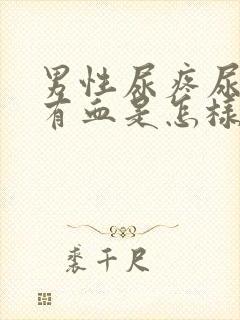 男性尿疼尿
有血是怎样
裘千尺